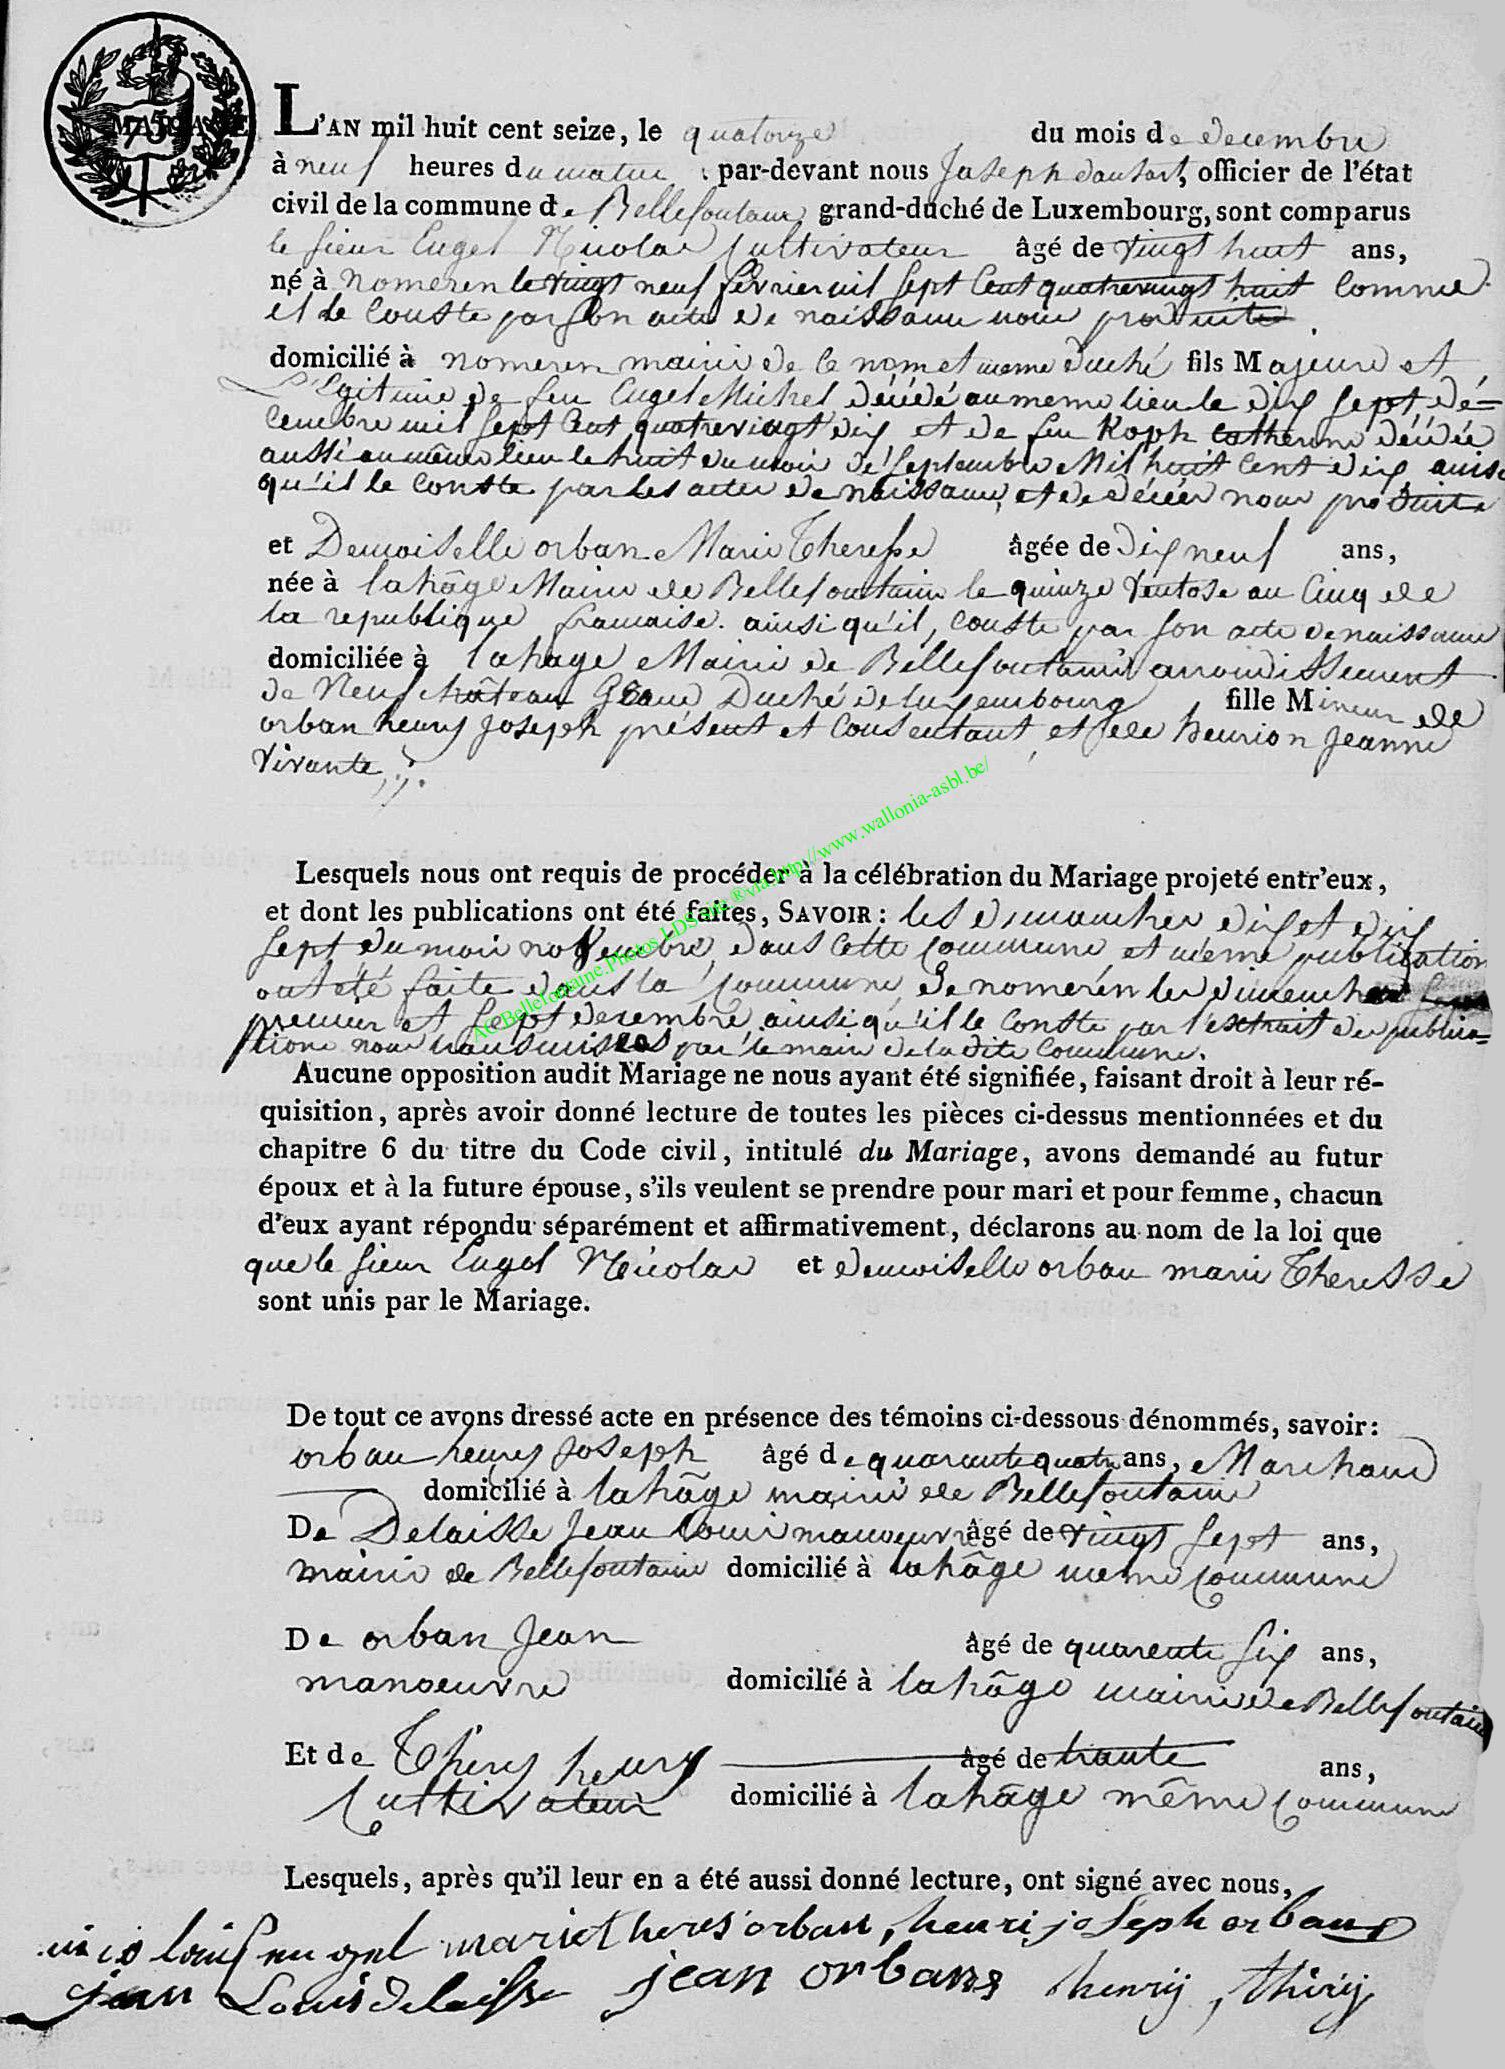 MARIAGE
75
L'AN mil huit cent seize, le quatorze du mois de decembre
à neuf heures du matin par-devant nous Joseph dautart, officier de l'état
civil de la commune de Bellefontaine grand-duché de Luxembourg, sont comparus
le sieur Engel Nicolas Cultivateur âgé de vingt huit ans,
né à nomeren le vingt neuf février mil sept Cent quatrevingt huit Comme
il le Conste par son acte de naissance nous produite
domicilié à nomeren mairie de Ce nom et meme duché fils Majeure et
Légitime de feu Engel Michel décédé au meme lieu le dix sept dé=
cembre mil sept Cent quatrevingt dix et de feu Koph Catherine décédée
aussi au même lieu le huit du mois de Septembre Mil huit Cent dix ainsi
qu'il le Conste par les actes de naissance, et de décès nous produite
et Demoiselle orban Marie Therese âgée de dix neuf ans,
née à lahâge Mairie de Bellefontaine le quinze Ventose an Cinq de
la republique francaise. ainsi qu'il, Conste par son acte de naissance
domiciliée à lahage Mairie de Bellefontaine arrondissement
de Neufchâteau Grand Duché de luxembourg fille Mineur de
orban henry Joseph présent et Consentant, et de henrion Jeanne
Vivante
Lesquels nous ont requis de procéder à la célébration du Mariage projeté entr'eux,
et dont les publications ont été faites, SAVOIR : les dimanches dix et dix
sept du mois novembre, dans Cette Commune, et même publication
ont été faite dans la Commune de nomerén les dimenches
premier et sept decembre, ainsi qu'il le Conste par l'extrait de publica=
tions nous transmises par le maire de la dite Commune.
Aucune opposition audit Mariage ne nous ayant été signifiée, faisant droit à leur ré-
quisition, après avoir donné lecture de toutes les pièces ci-dessus mentionnées et du
chapitre 6 du titre du Code civil, intitulé du Mariage, avons demandé au futur
époux et à la future épouse, s'ils veulent se prendre pour mari et pour femme, chacun
d'eux ayant répondu séparément et affirmativement, déclarons au nom de la loi que
que le sieur Engel Nicolas et demoiselle orban marie Theresse
sont unis par le Mariage.
De tout ce avons dressé acte en présence des témoins ci-dessous dénommés, savoir :
orban henry Joseph âgé de quarante quatre ans, Marchand
domicilié à lahâge mairie de Bellefontaine
De Delaisse Jean Louis manoeuvre âgé de vingt sept ans,
mairie de Bellefontaine domicilié à lahâge meme Commune
De orban Jean âgé de quarente six ans,
manoeuvre domicilié à lahâge mairie de Bellefontaine
Et de Thiery henry âgé de trante ans,
Cultivateur domicilié à lahâge même Commune
Lesquels, après qu'il leur en a été aussi donné lecture, ont signé avec nous,
nicolais engel marie theres orban, henri joseph orban
jean Louis delaisse jean orban henrij, thirij
AC Bellefontaine.Photos LDS site ®via http://www.wallonia-asbl.be/